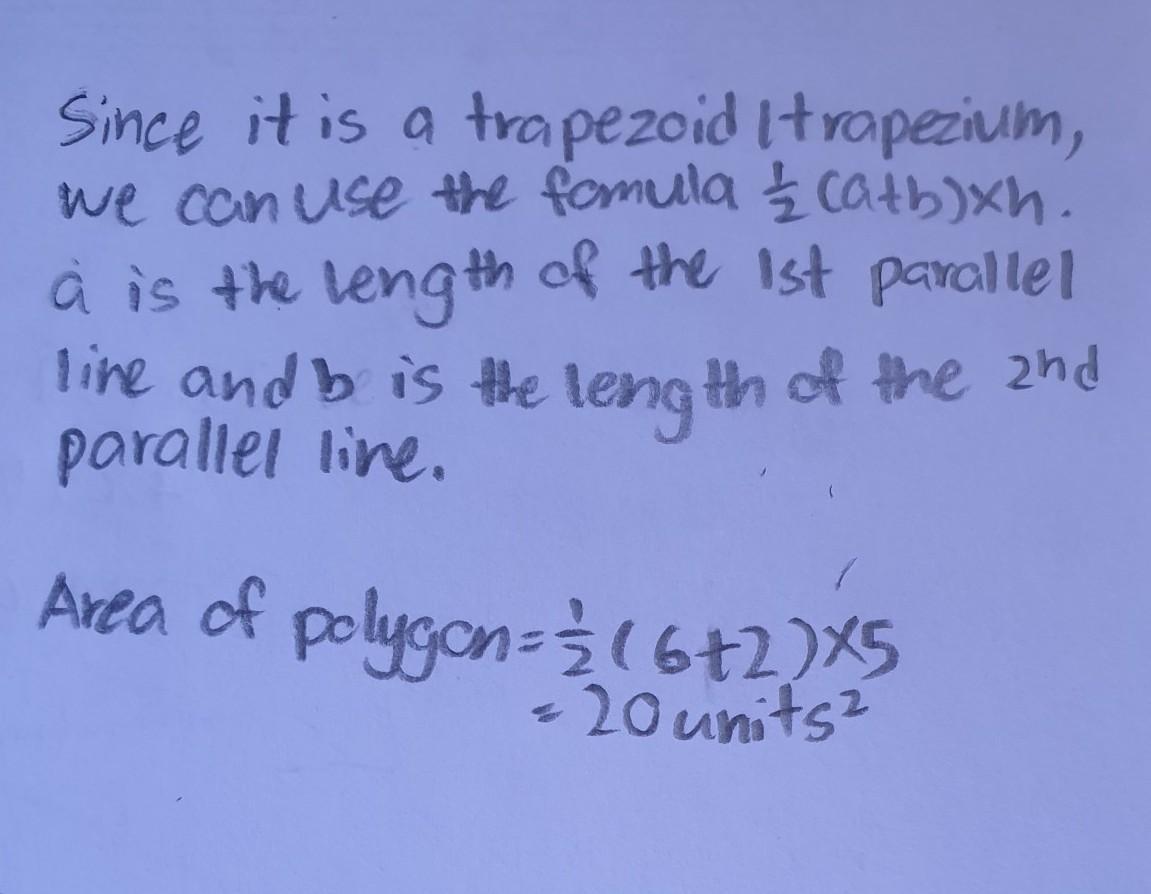 Since it is a trapezoid/trapezium,
we can use the fomula ½(a+b)×h.
a is the length of the 1st parallel
line and b is the length of the 2nd
parallel line.
Area of polygon=½(6+2)×5
=20units²